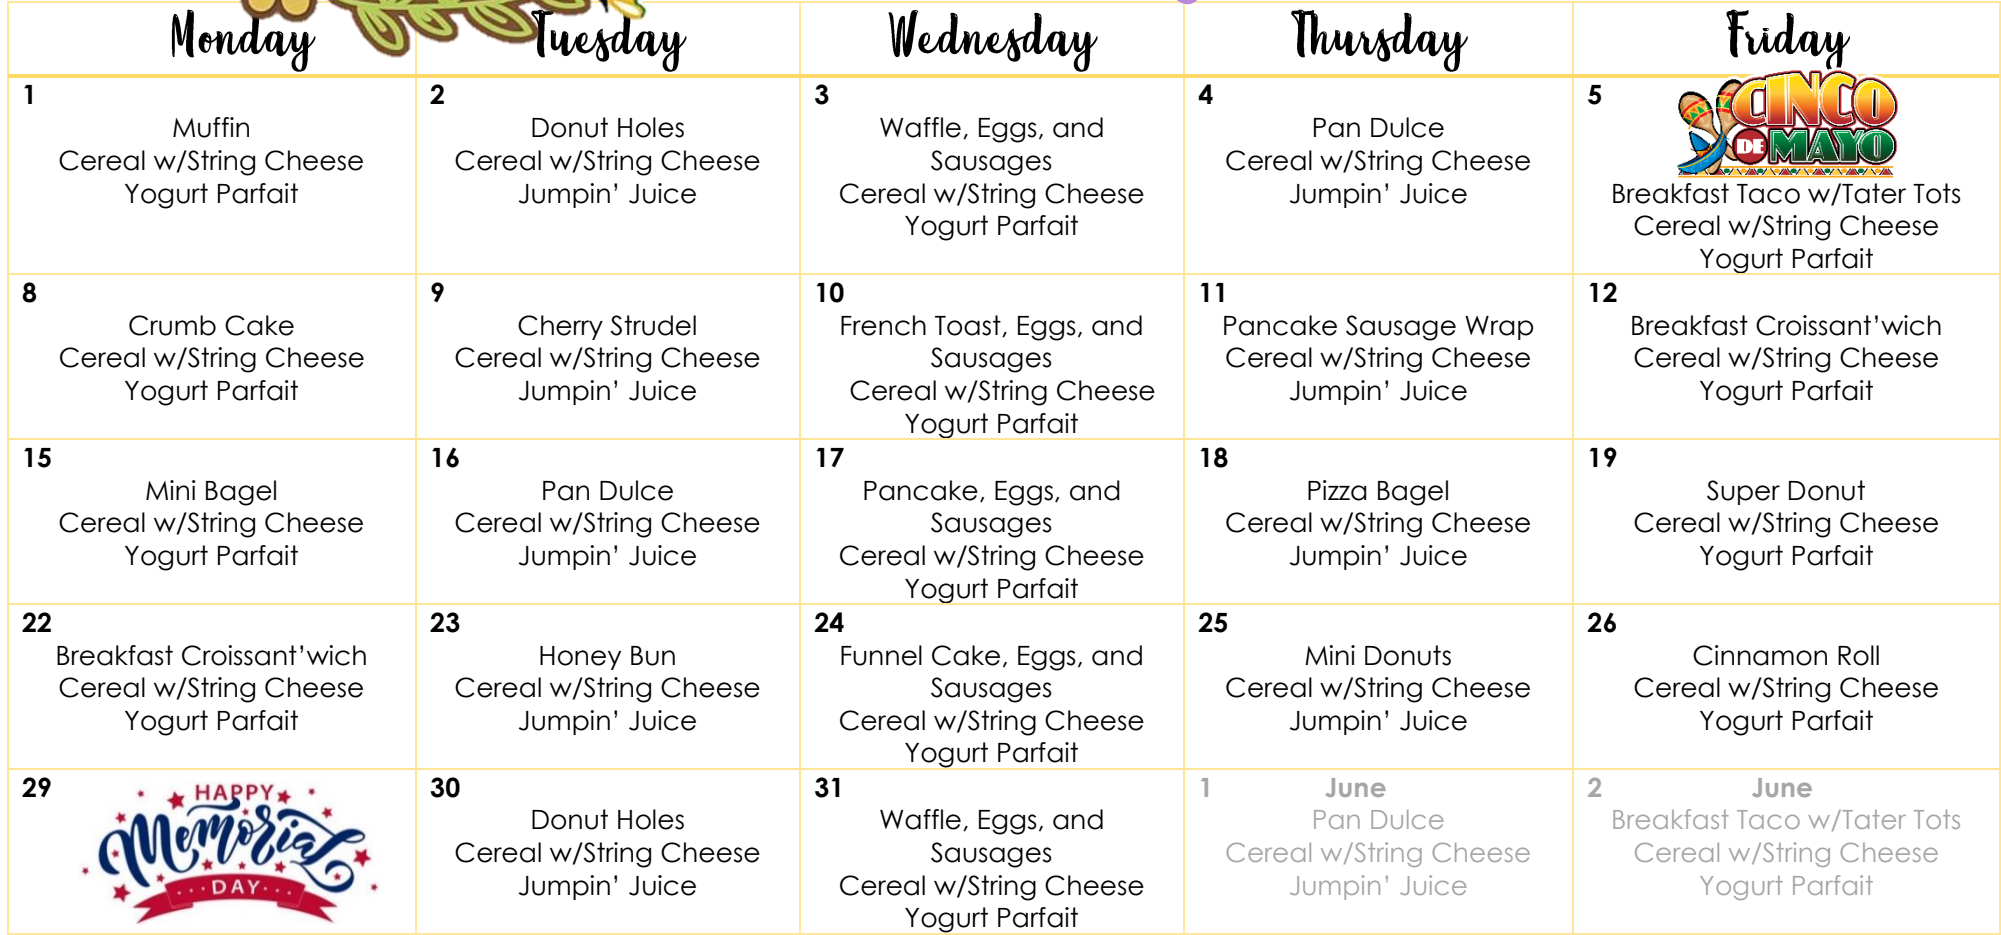 Monday
Tuesday
Wednesday
Thursday
Friday
1
Muffin
Cereal w/String Cheese
Yogurt Parfait
2
Donut Holes
Cereal w/String Cheese
Jumpin’ Juice
3
Waffle, Eggs, and
Sausages
Cereal w/String Cheese
Yogurt Parfait
4
Pan Dulce
Cereal w/String Cheese
Jumpin’ Juice
5
CINCO
DE MAYO
Breakfast Taco w/Tater Tots
Cereal w/String Cheese
Yogurt Parfait
8
Crumb Cake
Cereal w/String Cheese
Yogurt Parfait
9
Cherry Strudel
Cereal w/String Cheese
Jumpin’ Juice
10
French Toast, Eggs, and
Sausages
Cereal w/String Cheese
Yogurt Parfait
11
Pancake Sausage Wrap
Cereal w/String Cheese
Jumpin’ Juice
12
Breakfast Croissant’wich
Cereal w/String Cheese
Yogurt Parfait
15
Mini Bagel
Cereal w/String Cheese
Yogurt Parfait
16
Pan Dulce
Cereal w/String Cheese
Jumpin’ Juice
17
Pancake, Eggs, and
Sausages
Cereal w/String Cheese
Yogurt Parfait
18
Pizza Bagel
Cereal w/String Cheese
Jumpin’ Juice
19
Super Donut
Cereal w/String Cheese
Yogurt Parfait
22
Breakfast Croissant’wich
Cereal w/String Cheese
Yogurt Parfait
23
Honey Bun
Cereal w/String Cheese
Jumpin’ Juice
24
Funnel Cake, Eggs, and
Sausages
Cereal w/String Cheese
Yogurt Parfait
25
Mini Donuts
Cereal w/String Cheese
Jumpin’ Juice
26
Cinnamon Roll
Cereal w/String Cheese
Yogurt Parfait
29
HAPPY
Memorial
DAY
30
Donut Holes
Cereal w/String Cheese
Jumpin’ Juice
31
Waffle, Eggs, and
Sausages
Cereal w/String Cheese
Yogurt Parfait
1 June
Pan Dulce
Cereal w/String Cheese
Jumpin’ Juice
2 June
Breakfast Taco w/Tater Tots
Cereal w/String Cheese
Yogurt Parfait